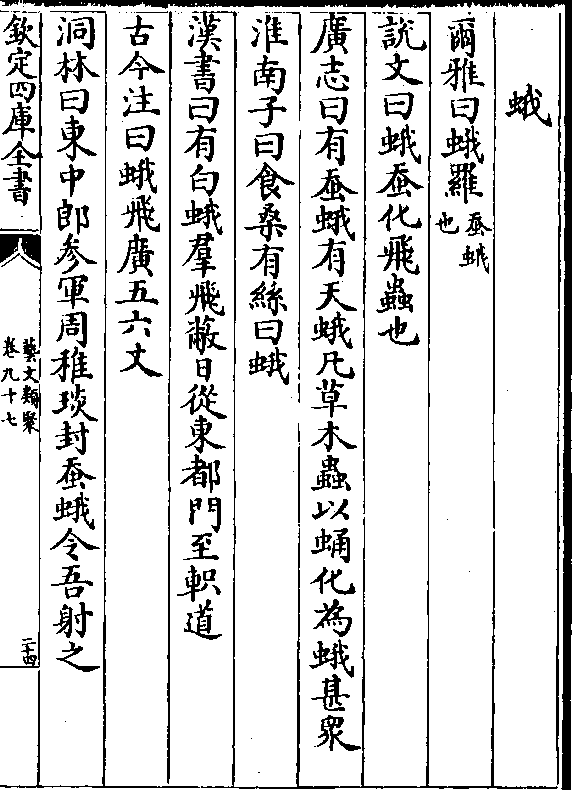 蛾
爾雅曰蛾羅蚕蛾也
說文曰蛾蚕化飛蟲也
廣志曰有蚕蛾有天蛾凡草木蟲以蛹化為蛾甚眾
淮南子曰食桑有絲曰蛾
漢書曰有白蛾羣飛蔽日從東都門至軹道
古今注曰蛾飛廣五六丈
洞林曰東中郎參軍周稚琰封蚕蛾令吾射之
欽定四庫全書
藝文類聚
卷九十七
二十四